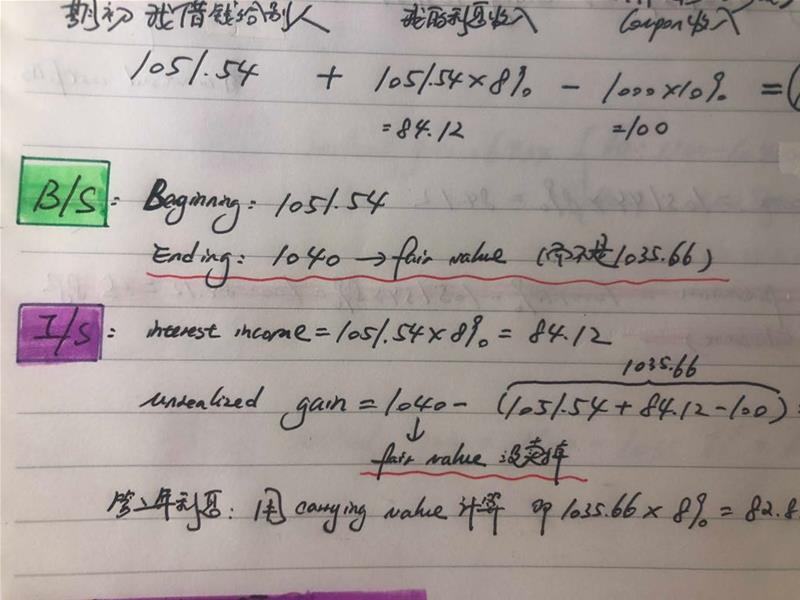 期初 我借钱给别人 我的利息收入 Coupon收入
1051.54 + 1051.54×8% - 1000×10% = (
=84.12 =100
B/S: Beginning: 1051.54
Ending: 1040 → fair value (而不是1035.66)
I/S: interest income = 1051.54×8% = 84.12
1035.66
unrealized gain = 1040 - (1051.54 + 84.12 - 100) =
↓
fair value 没卖掉
第二年利息: 用 carrying value 计算 即 1035.66 × 8% = 82.8